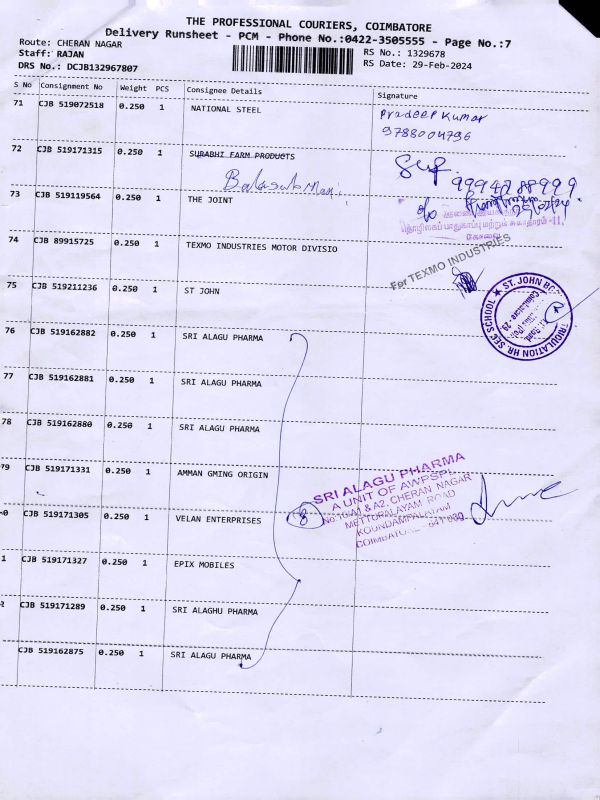 THE PROFESSIONAL COURIERS, COIMBATORE
Delivery Runsheet - PCM - Phone No.:0422-3505555 - Page No.:7
Route: CHERAN NAGAR
Staff: RAJAN
DRS No.: DCJB132967807
RS No.: 1329678
RS Date: 29-Feb-2024
S No Consignment No Weight PCS Consignee Details Signature
71 CJB 519072518 0.250 1 NATIONAL STEEL
Pradeep Kumar
9788004796
72 CJB 519171315 0.250 1 SURABHI FARM PRODUCTS
9994288999
73 CJB 519119564 0.250 1 THE JOINT
74 CJB 89915725 0.250 1 TEXMO INDUSTRIES MOTOR DIVISIO
For TEXMO INDUSTRIES
75 CJB 519211236 0.250 1 ST JOHN
76 CJB 519162882 0.250 1 SRI ALAGU PHARMA
77 CJB 519162881 0.250 1 SRI ALAGU PHARMA
78 CJB 519162880 0.250 1 SRI ALAGU PHARMA
79 CJB 519171331 0.250 1 AMMAN GMING ORIGIN
8
SRI ALAGU PHARMA
A UNIT OF AWPSPL
& A2, CHERAN NAGAR
METTUPALAYAM ROAD
KOUNDAMPALAYAM
COIMBATORE - 641 030.
0 CJB 519171305 0.250 1 VELAN ENTERPRISES
1 CJB 519171327 0.250 1 EPIX MOBILES
2 CJB 519171289 0.250 1 SRI ALAGHU PHARMA
CJB 519162875 0.250 1 SRI ALAGU PHARMA